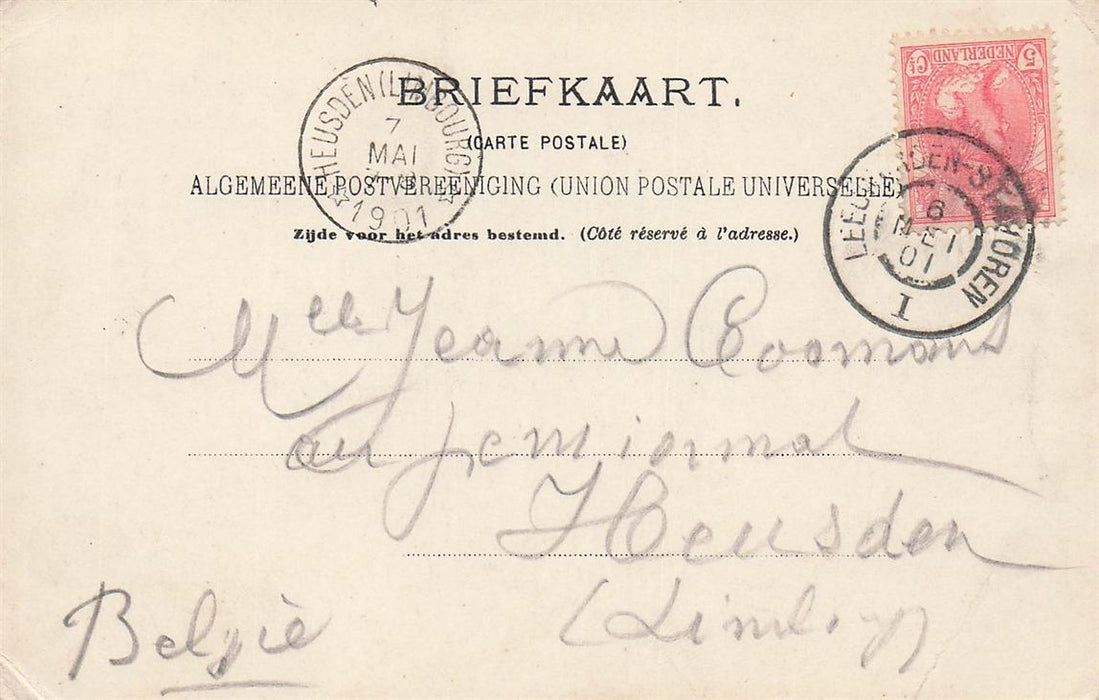 NEDERLAND
5 Ct
BRIEFKAART.
(CARTE POSTALE)
ALGEMEENE POSTVEREENIGING (UNION POSTALE UNIVERSELLE)
Zijde voor het adres bestemd. (Côté réservé à l'adresse.)
HEUSDEN (LIMBOURG)
7
MAI
1901
LEEUWARDEN-STAVOREN
6
MEI
01
I
Melle Jeanne Coomans
au pensionnat
Heusden
(Limburg)
België